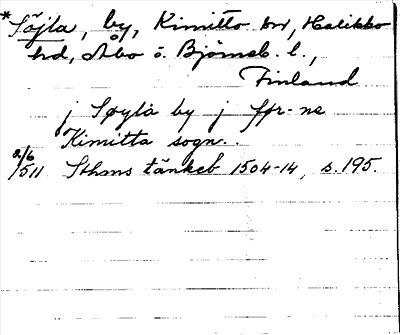 *Söjla, by, Kimitto sn, Halikko
hd, Åbo o. Björneb. l.,
Finland
j Søyla by j ffr-ne
Kimitta sogn..
2/6
1511 Sthms tänkeb 1504-14, s. 195.